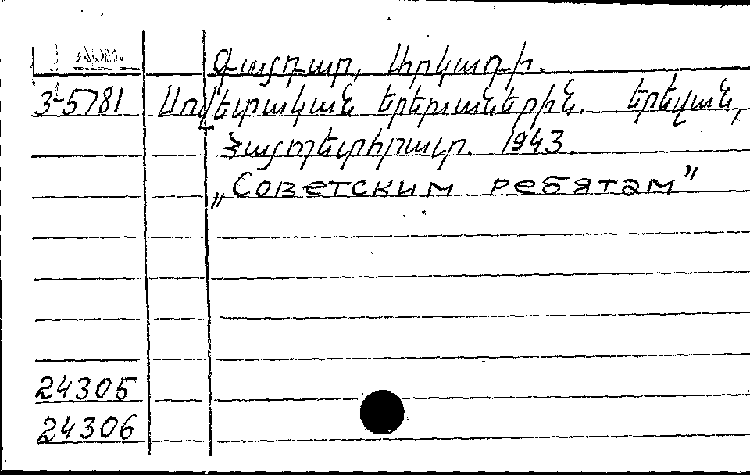 Գայդար, Արկադի.
3-5781 Սովետական երեխաներին. Երևան,
Հայպետհրատ. 1943.
„Советским ребятам"
24305
24306